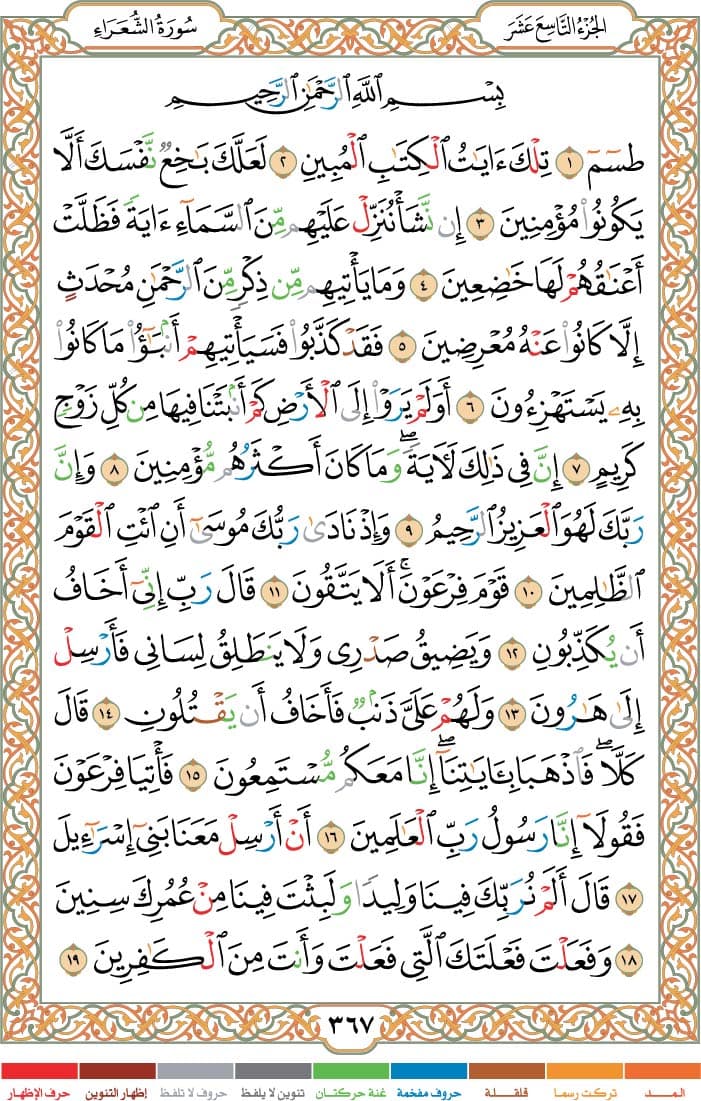 الجزء التاسع عشر
سورة الشعراء
بِسْمِ ٱللَّهِ ٱلرَّحْمَٰنِ ٱلرَّحِيمِ
طسٓمٓ ١ تِلْكَ ءَايَٰتُ ٱلْكِتَٰبِ ٱلْمُبِينِ ٢ لَعَلَّكَ بَٰخِعٌ نَّفْسَكَ أَلَّا
يَكُونُوا۟ مُؤْمِنِينَ ٣ إِن نَّشَأْ نُنَزِّلْ عَلَيْهِم مِّنَ ٱلسَّمَآءِ ءَايَةً فَظَلَّتْ
أَعْنَٰقُهُمْ لَهَا خَٰضِعِينَ ٤ وَمَا يَأْتِيهِم مِّن ذِكْرٍ مِّنَ ٱلرَّحْمَٰنِ مُحْدَثٍ
إِلَّا كَانُوا۟ عَنْهُ مُعْرِضِينَ ٥ فَقَدْ كَذَّبُوا۟ فَسَيَأْتِيهِمْ أَنۢبَٰٓؤُا۟ مَا كَانُوا۟
بِهِۦ يَسْتَهْزِءُونَ ٦ أَوَلَمْ يَرَوْا۟ إِلَى ٱلْأَرْضِ كَمْ أَنۢبَتْنَا فِيهَا مِن كُلِّ زَوْجٍ
كَرِيمٍ ٧ إِنَّ فِى ذَٰلِكَ لَءَايَةً ۖ وَمَا كَانَ أَكْثَرُهُم مُّؤْمِنِينَ ٨ وَإِنَّ
رَبَّكَ لَهُوَ ٱلْعَزِيزُ ٱلرَّحِيمُ ٩ وَإِذْ نَادَىٰ رَبُّكَ مُوسَىٰٓ أَنِ ٱئْتِ ٱلْقَوْمَ
ٱلظَّٰلِمِينَ ١٠ قَوْمَ فِرْعَوْنَ ۚ أَلَا يَتَّقُونَ ١١ قَالَ رَبِّ إِنِّىٓ أَخَافُ
أَن يُكَذِّبُونِ ١٢ وَيَضِيقُ صَدْرِى وَلَا يَنطَلِقُ لِسَانِى فَأَرْسِلْ
إِلَىٰ هَٰرُونَ ١٣ وَلَهُمْ عَلَىَّ ذَنۢبٌ فَأَخَافُ أَن يَقْتُلُونِ ١٤ قَالَ
كَلَّا ۖ فَٱذْهَبَا بِـَٔايَٰتِنَآ ۖ إِنَّا مَعَكُم مُّسْتَمِعُونَ ١٥ فَأْتِيَا فِرْعَوْنَ
فَقُولَآ إِنَّا رَسُولُ رَبِّ ٱلْعَٰلَمِينَ ١٦ أَنْ أَرْسِلْ مَعَنَا بَنِىٓ إِسْرَٰٓءِيلَ
١٧ قَالَ أَلَمْ نُرَبِّكَ فِينَا وَلِيدًا وَلَبِثْتَ فِينَا مِنْ عُمُرِكَ سِنِينَ
١٨ وَفَعَلْتَ فَعْلَتَكَ ٱلَّتِى فَعَلْتَ وَأَنتَ مِنَ ٱلْكَٰفِرِينَ ١٩
٣٦٧
المــد تركت رسما قلقلة حروف مفخمة غنة حركتان تنوين لا يلفظ حروف لا تلفظ إظهار التنوين حرف الإظهار